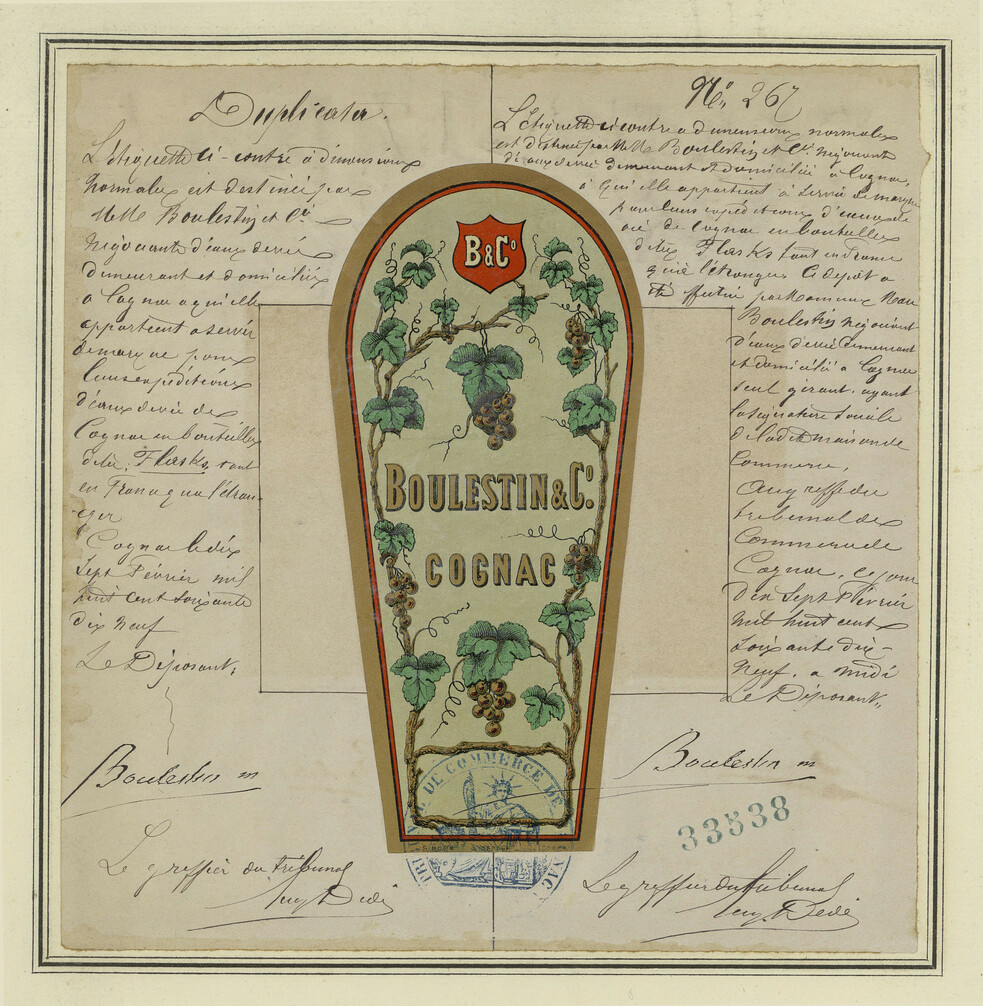 Duplicata.
L'étiquette ci-contre à dimensions
normales est destinée par
MM Boulestin et Cie
Négociants d'eaux de vie
demeurant et domiciliés
a Cognac a qui elle
appartient a servir
de marque pour
leurs expéditions
d'eaux de vie de
Cognac en bouteilles
dites, Flasks, tant
en France qu'a l'étran-
ger
Cognac le dix
Sept Février mil
huit cent soixante
dix neuf
Le Déposant,
Boulestin
Le greffier du tribunal
No. 267
L'étiquette ci contre a dimensions normales
est destinée par MM. Boulestin et Cie Négociants
d'eaux de vie demeurant et domiciliés à Cognac,
à qui elle appartient à servir de marque
pour leurs expéditions d'eaux de
vie de Cognac en bouteilles
dites Flasks tant en France
qu'à l'étranger Ce dépôt a
été effectué par Monsieur
Boulestin négociant
d'eaux de vie demeurant
et domicilié a Cognac
seul gérant, ayant
la signature sociale
de la dite maison de
Commerce,
Au greffe du
tribunal de
Commerce de
Cognac, ce jour
dix Sept Février
mil huit cent
soixante dix-
neuf, a midi
Le Déposant,,
Boulestin
Le greffier du tribunal
33538
B&Co
BOULESTIN & Co.
COGNAC
DE COMMERCE DE